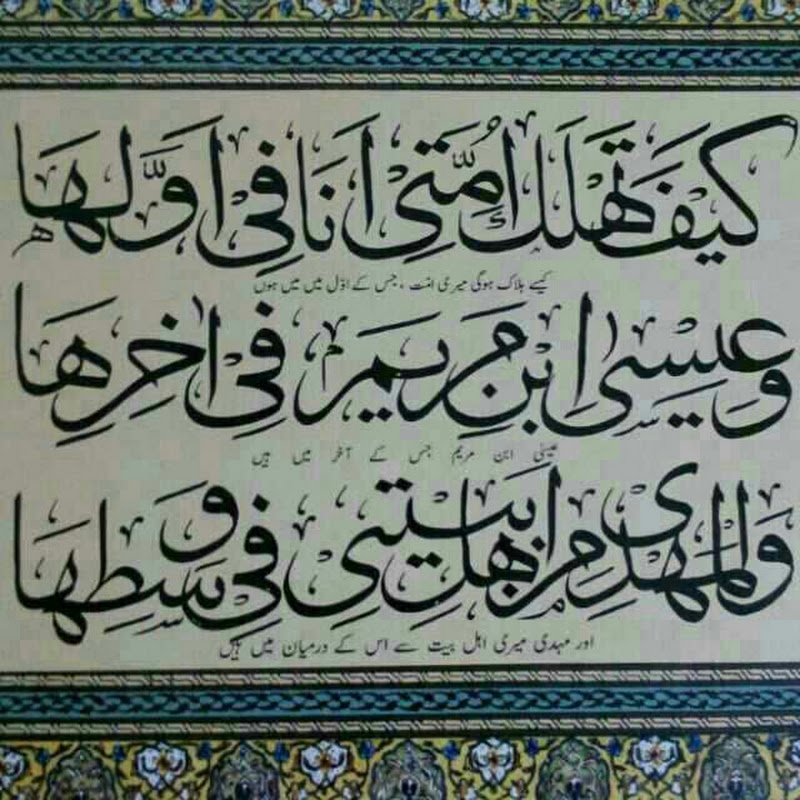 كَيْفَ تَهْلَكُ اُمَّتِیْ اَنَا فِیْ اَوَّلِهَا
کیسے ہلاک ہوگی میری امت ، جس کے اوّل میں میں ہوں
وَعِيسٰى ابْنِ مَرْيَمَ فِیْ اٰخِرِهَا
عیسیٰ ابن مریم جس کے آخر میں ہیں
وَالْمَهْدِی مِنْ اَهْلِ بَيْتِی فِیْ وَسَطِهَا
اور مہدی میری اہل بیت سے اس کے درمیان میں ہیں